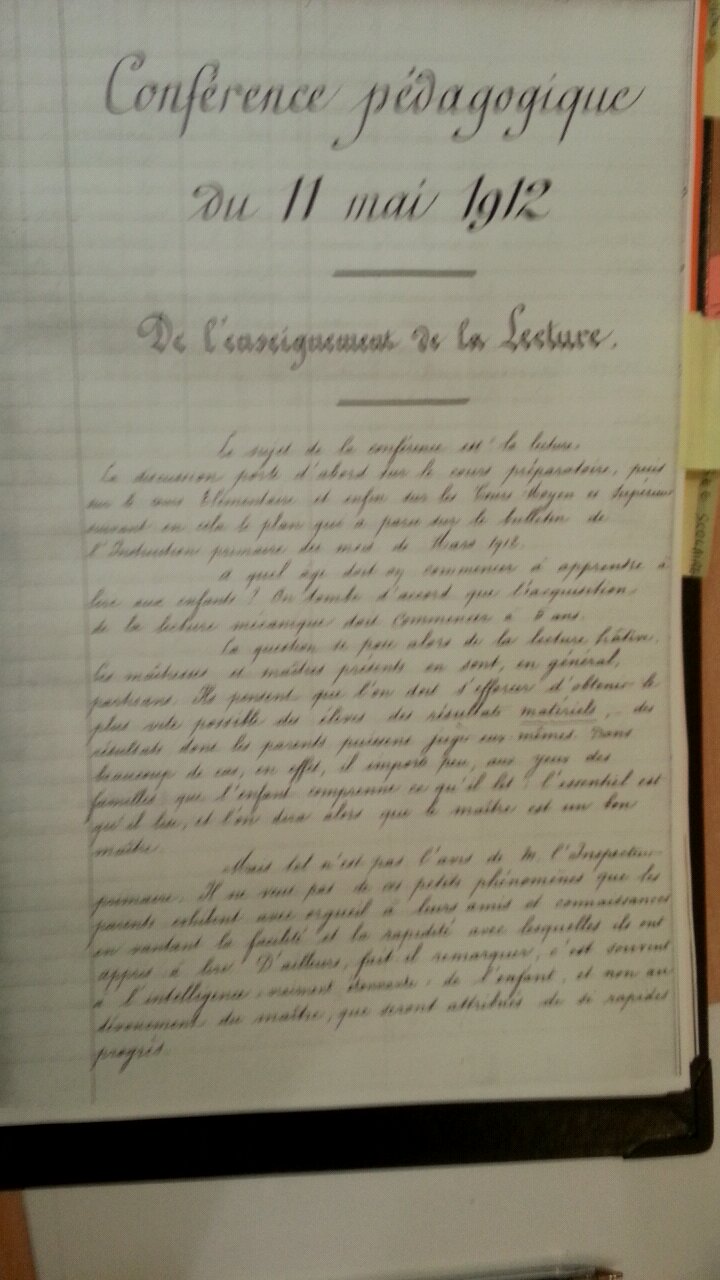 Conférence pédagogique
du 11 mai 1912
De l'enseignement de la Lecture.
Le sujet de la conférence est : la lecture.
La discussion porte d'abord sur le cours préparatoire, puis
sur le cours Élémentaire et enfin sur les Cours Moyen et Supérieur
suivant en cela le plan qui a paru sur le bulletin de
l'Instruction primaire du mois de Mars 1912.
A quel âge doit on commencer à apprendre à
lire aux enfants ? On tombe d'accord que l'acquisition
de la lecture mécanique doit commencer à 5 ans.
La question se pose alors de la lecture hâtive.
Les maîtresses et maîtres présents en sont, en général,
partisans. Ils pensent que l'on doit s'efforcer d'obtenir le
plus vite possible des élèves des résultats matériels, des
résultats dont les parents puissent juger eux-mêmes. Dans
beaucoup de cas, en effet, il importe peu, aux yeux des
familles que l'enfant comprenne ce qu'il lit : l'essentiel est
qu'il lise, et l'on dira alors que le maître est un bon
maître.
Mais tel n'est pas l'avis de M. l'Inspecteur
primaire. Il ne veut pas de ces petits phénomènes que les
parents exhibent avec orgueil à leurs amis et connaissances
en vantant la facilité et la rapidité avec lesquelles ils ont
appris à lire. D'ailleurs, fait-il remarquer, c'est souvent
à l'intelligence vraiment de l'enfant, et non au
dévouement du maître, que seront attribués de si rapides
progrès.
SCOLAIRE